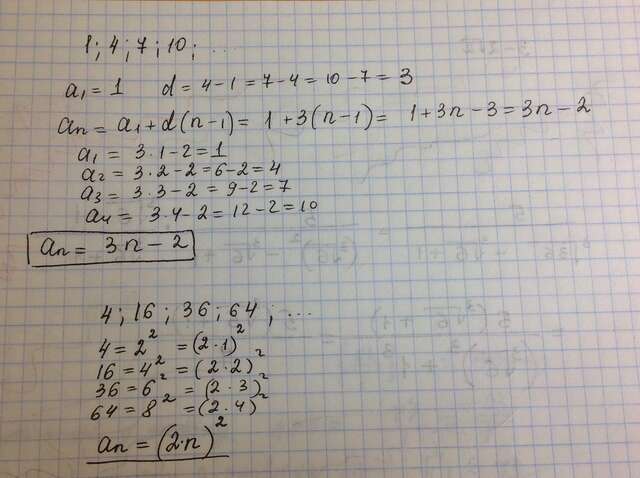 1; 4; 7; 10; ...
a₁ = 1 d = 4-1 = 7-4 = 10-7 = 3
aₙ = a₁ + d(n-1) = 1 + 3(n-1) = 1+3n-3 = 3n-2
a₁ = 3·1-2 = 1
a₂ = 3·2-2 = 6-2 = 4
a₃ = 3·3-2 = 9-2 = 7
a₄ = 3·4-2 = 12-2 = 10
aₙ = 3n-2
4; 16; 36; 64; ...
4 = 2² = (2·1)²
16 = 4² = (2·2)²
36 = 6² = (2·3)²
64 = 8² = (2·4)²
aₙ = (2·n)²